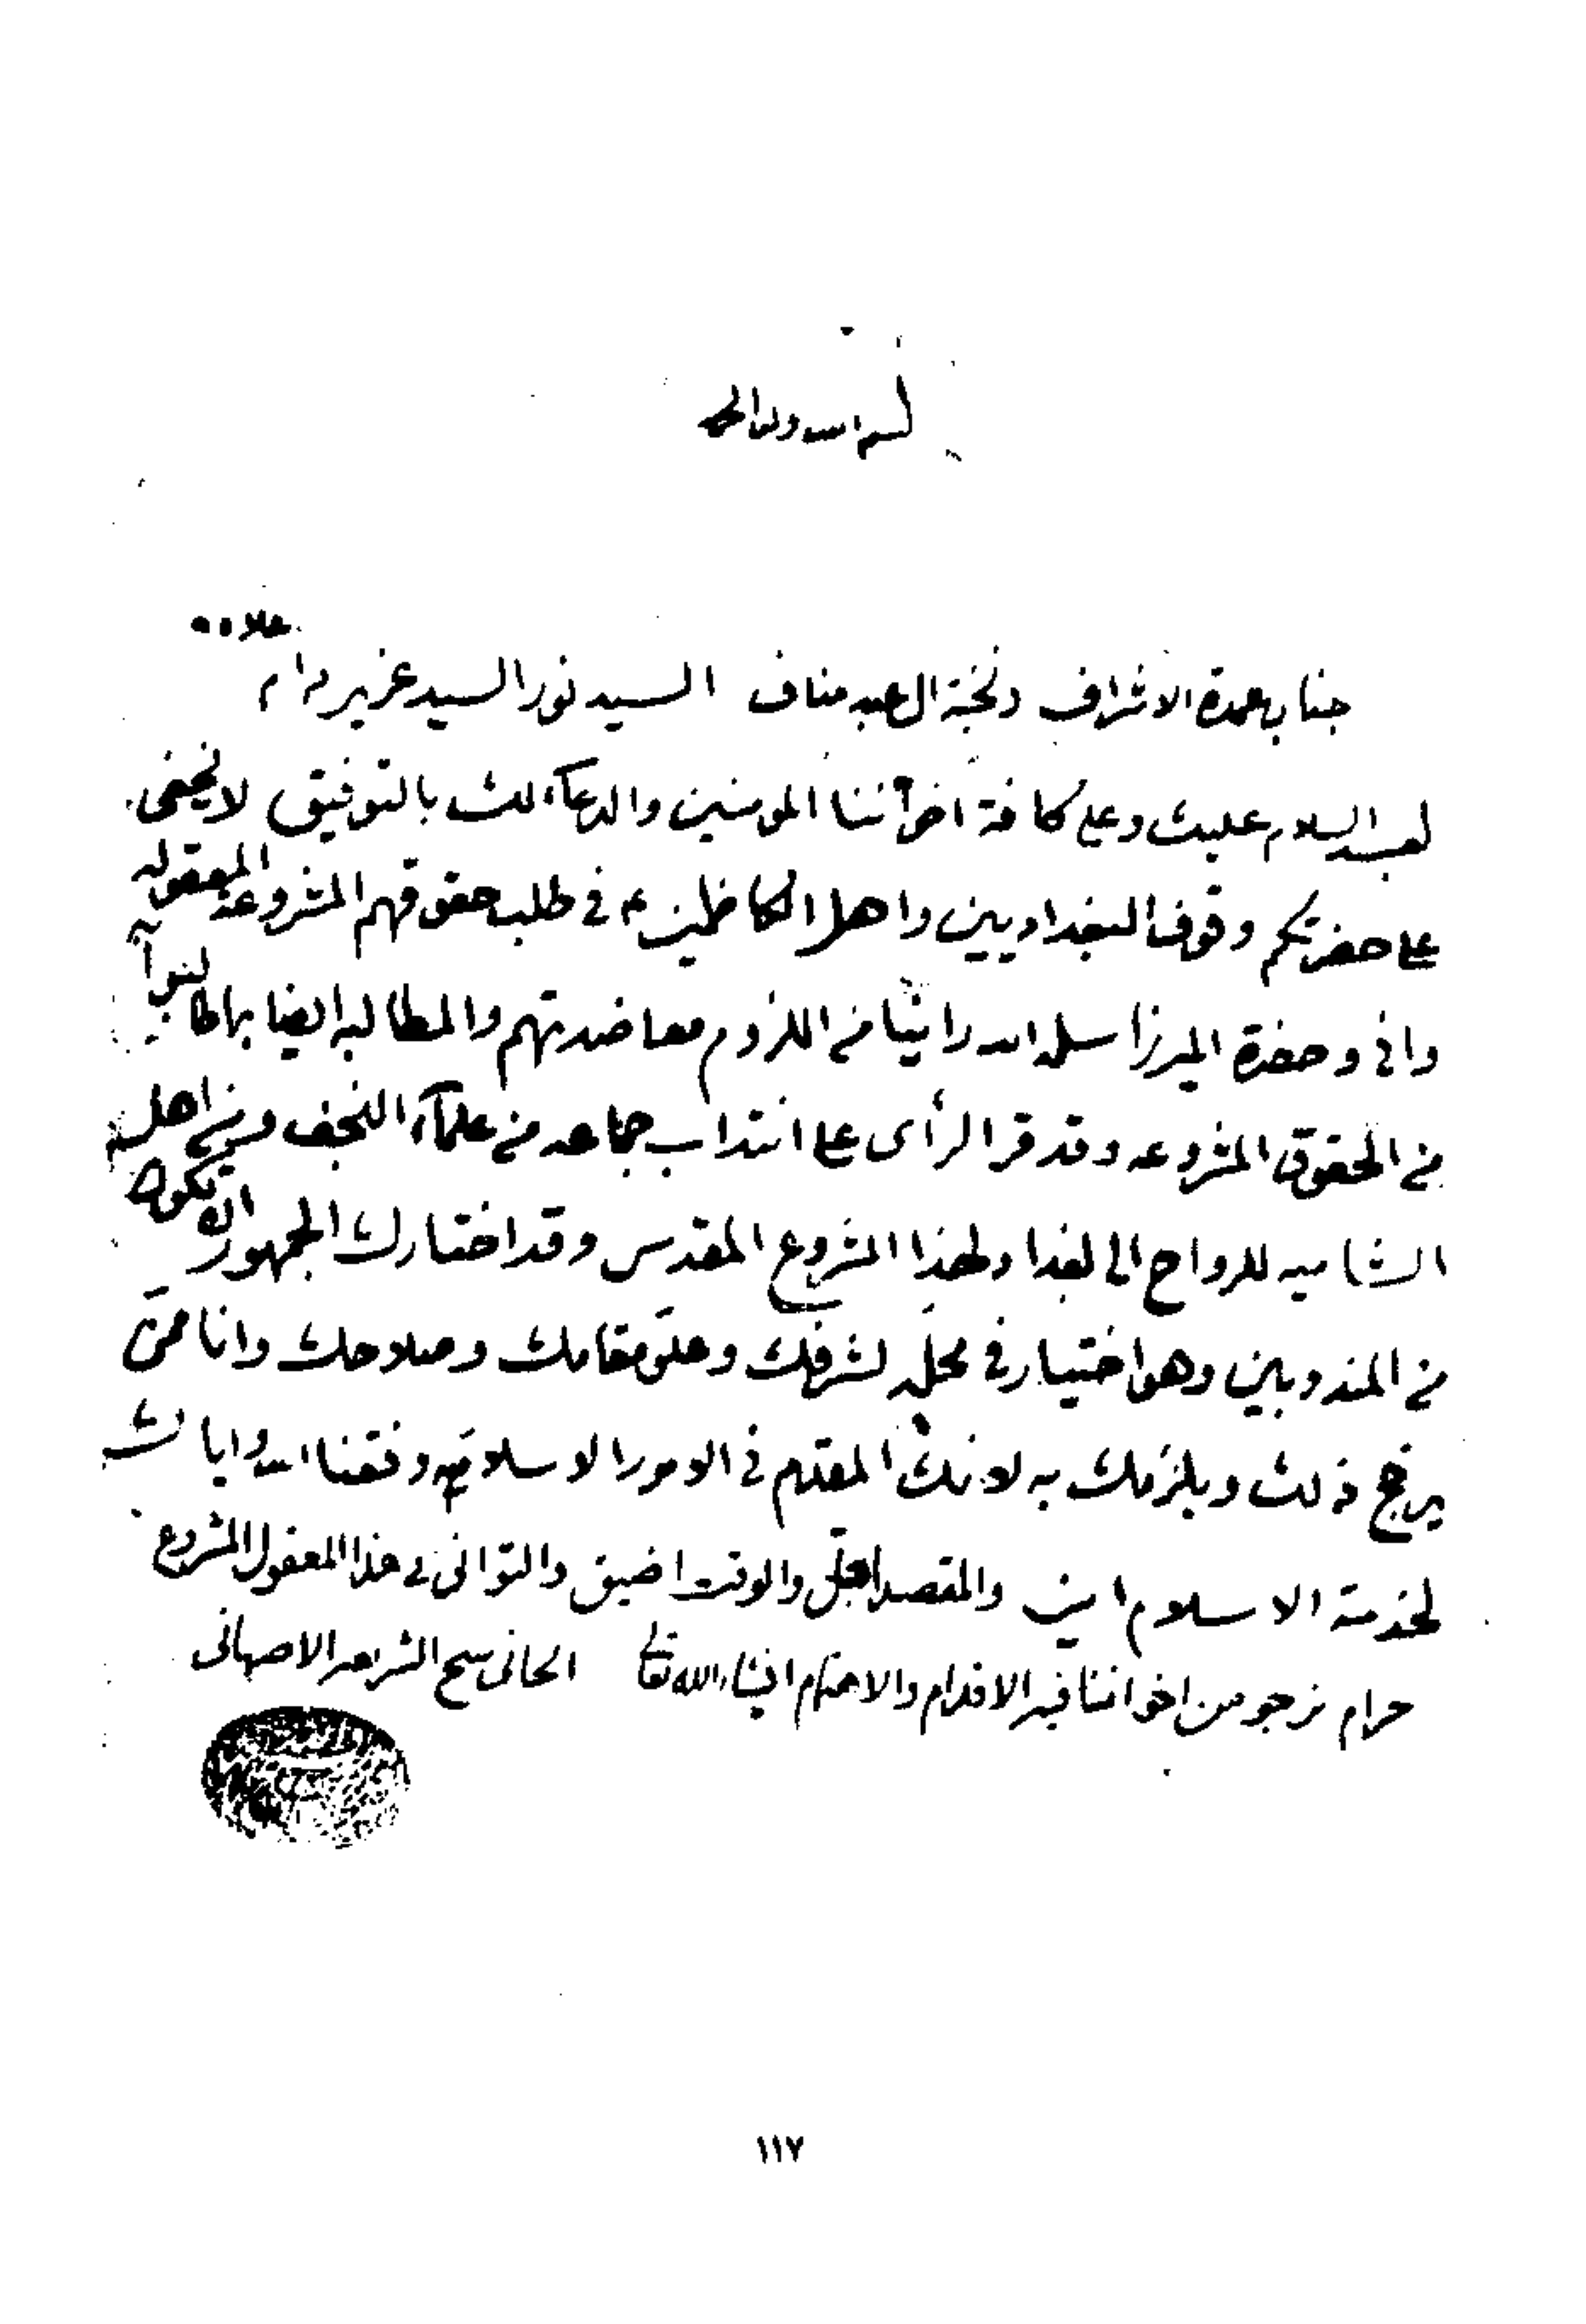 بسم الله وله الحمد
جناب عمدة الاشراف ونخبة ال عبد مناف السيد نور السيد عزيز دام علاه
بعد السلام عليك وعلى كافة اخواننا المومنين والدعاء لك بالتوفيق لا يخفى
على حضرتكم وقوف البغداديين واهل الكاظمين ع في طلب حقوقهم المشروعة المعقوله
واني وحضرة الميرزا سلمه الله راينا من اللزوم معاضدتهم والمطالبه ايضا بمالنا
من الحقوق المشروعه وقد قر الرأى على انتداب جماعه من علماء النجف ومن اهل
الشاميه للرواح الى بغداد لهذا المشروع المقدس وقد اختارك الجمهور ان تكون
من المندوبين وهو اختيار في محله لشرفك وعلو مقامك وصلاحك وانا ممن
يرجح ذلك ويلزمك به لانك المقدم في الامور الاسلاميه وفقنا الله واياك
لخدمة الاسلام امين والمقصد اجل والوقت اضيق والتوانى فى هذا المعقول المشروع
حرام نرجو من اخواننا فيه الاقدام والاهتمام انشاء الله تعا الجانى شيخ الشريعه الاصبهانى
١١٧